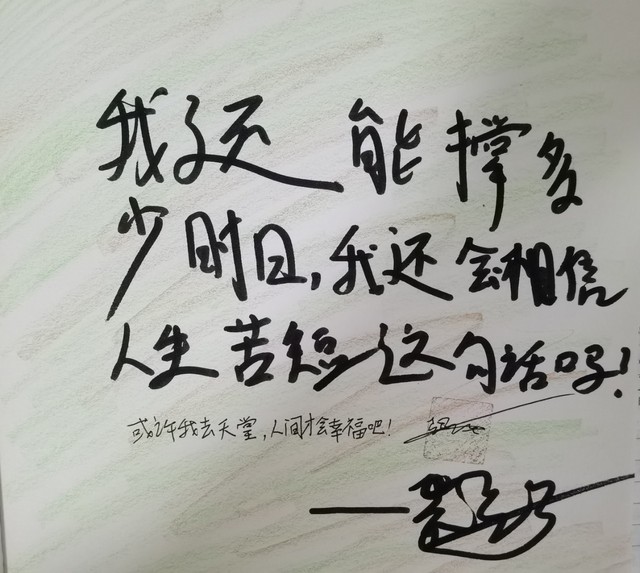 我还能撑多
少时日,我还会相信
人生苦短这句话吗!
或许我去天堂,人间才会幸福吧!